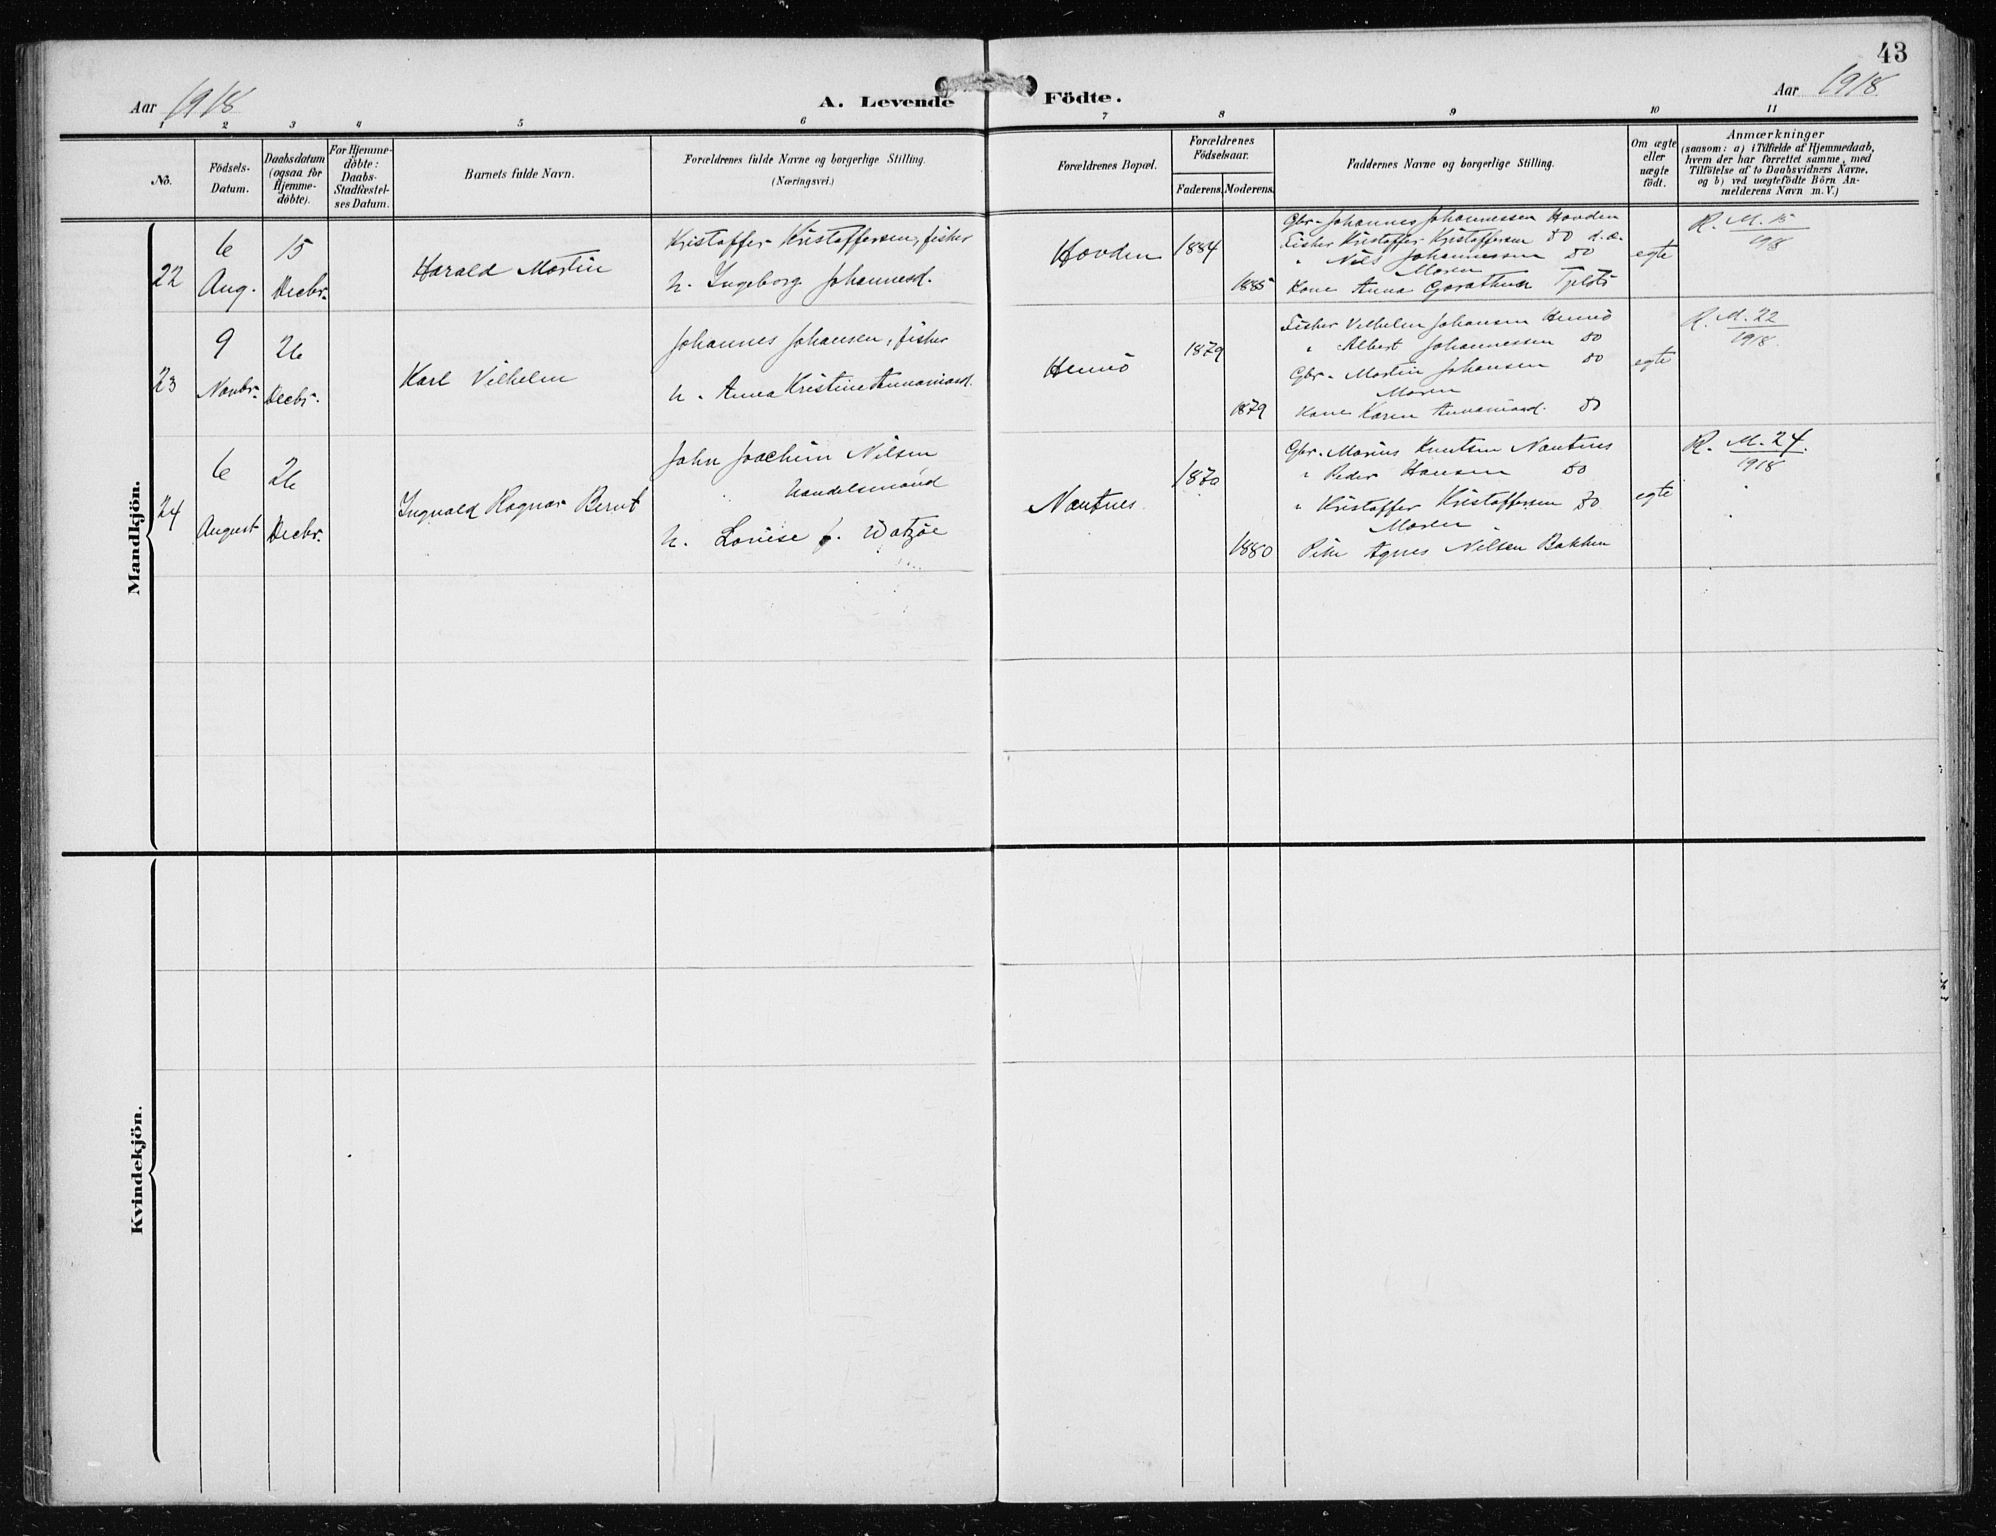 43
Aar 1918
A. Levende Födte.
Aar 1918
1 2 3 4 5 6 7 8 9 10 11
No.
Födsels-Datum.
Daabsdatum (ogsaa for Hjemme-döbte).
For Hjemme-döbte: Daabs-Stadfæstel-ses Datum.
Barnets fulde Navn.
Forældrenes fulde Navne og borgerlige Stilling.
(Næringsvei.)
Forældrenes Bopæl.
Forældrenes Födselsaar.
Faderens. Moderens.
Faddernes Navne og borgerlige Stilling.
Om ægte eller uægte födt.
Anmærkninger
(saasom: a) i Tilfælde af Hjemmedaab,
hvem der har forrettet samme, med
Tilföielse af to Daabsvidners Navne,
og b) ved uægtefödte Börn An-
melderens Navn m. V.)
Mandkjön.
22
6 Aug.
15 Decbr.
Harald Martin
Kristoffer Kristoffersen, fisker
h. Ingeborg Johannesd.
Hovden
1884
1885
Gbr. Johannes Johannessen Hovden
Fisker Kristoffer Kristoffersen do d.æ.
" Nils Johannessen do
Moren
Kone Anna
egte
R. M. 15
1918
23
9 Novbr.
26 Decbr.
Karl Vilhelm
Johannes Johansen, fisker
h. Anna Kristine
Hennö
1879
1879
Fisker Vilhelm Johansen Hennö
" Albert Johannessen do
Gbr. Martin Johansen do
Moren
Kone Karen do
egte
R. M. 22
1918.
24
6 August
26 Decbr.
Ingvald Ragnar Bernt
John Joachim Nilsen
handelsmand
h. Lovise f. Watzøe
Nautnes
1870
1880
Gbr. Marius Knutsen Nautnes
" Peder Hansen do
" Kristoffer Kristoffersen do
Moren
Pike Agnes Nilsen Bakken
egte
R. M. 24.
1918
Kvindekjön.